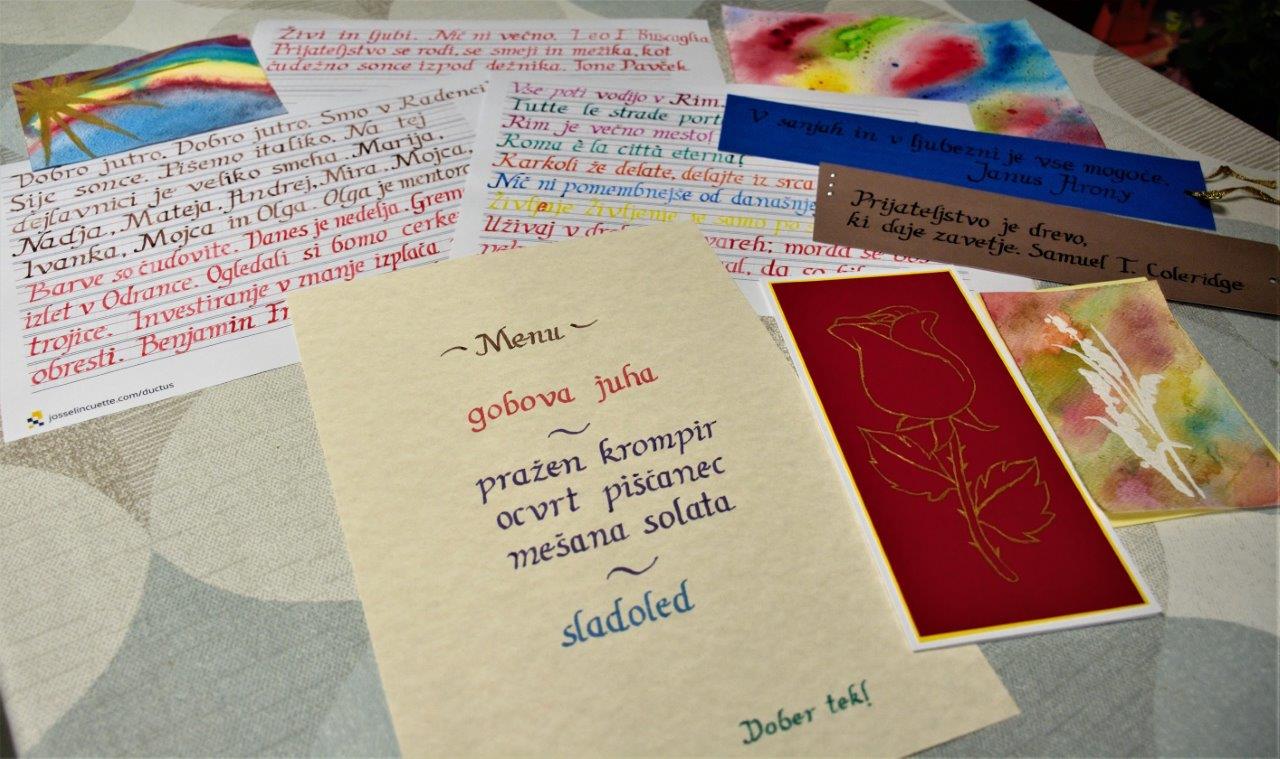 Živi in ljubi. Nič ni večno. Leo F Buscaglia
Prijateljstvo se rodi, se smeji in mežika, kot
čudežno sonce izpod dežnika. Tone Pavček
Dobro jutro. Dobro jutro. Smo v Radenci
Sije sonce. Pišemo italiko. Na tej
dejlavnici je veliko smeha. Marija,
Nadja, Mateja, Andrej, Mira, Mojca,
Ivanka, Mojca in Olga. Olga je mentora
Barve so čudovite. Danes je nedelja. Grem
izlet v Odrance. Ogledali si bomo cerke
trojice. Investiranje v znanje izplača
obresti. Benjamin Fr
josselincuette.com/ductus
Vse poti vodijo v Rim.
Tutte le strade port
Rim je večno mesto!
Roma è la città eterna!
Karkoli že delate, delajte iz srca
Nič ni pomembnejše od današnje
življenje je samo po
Uživaj v dro vareh; morda se bo
al, da so bil
V sanjah in v ljubezni je vse mogoče.
Janus Arony
Prijateljstvo je drevo,
ki daje zavetje. Samuel T. Coleridge
~ Menu ~
gobova juha
~
pražen krompir
ocvrt piščanec
mešana solata
~
sladoled
Dober tek!